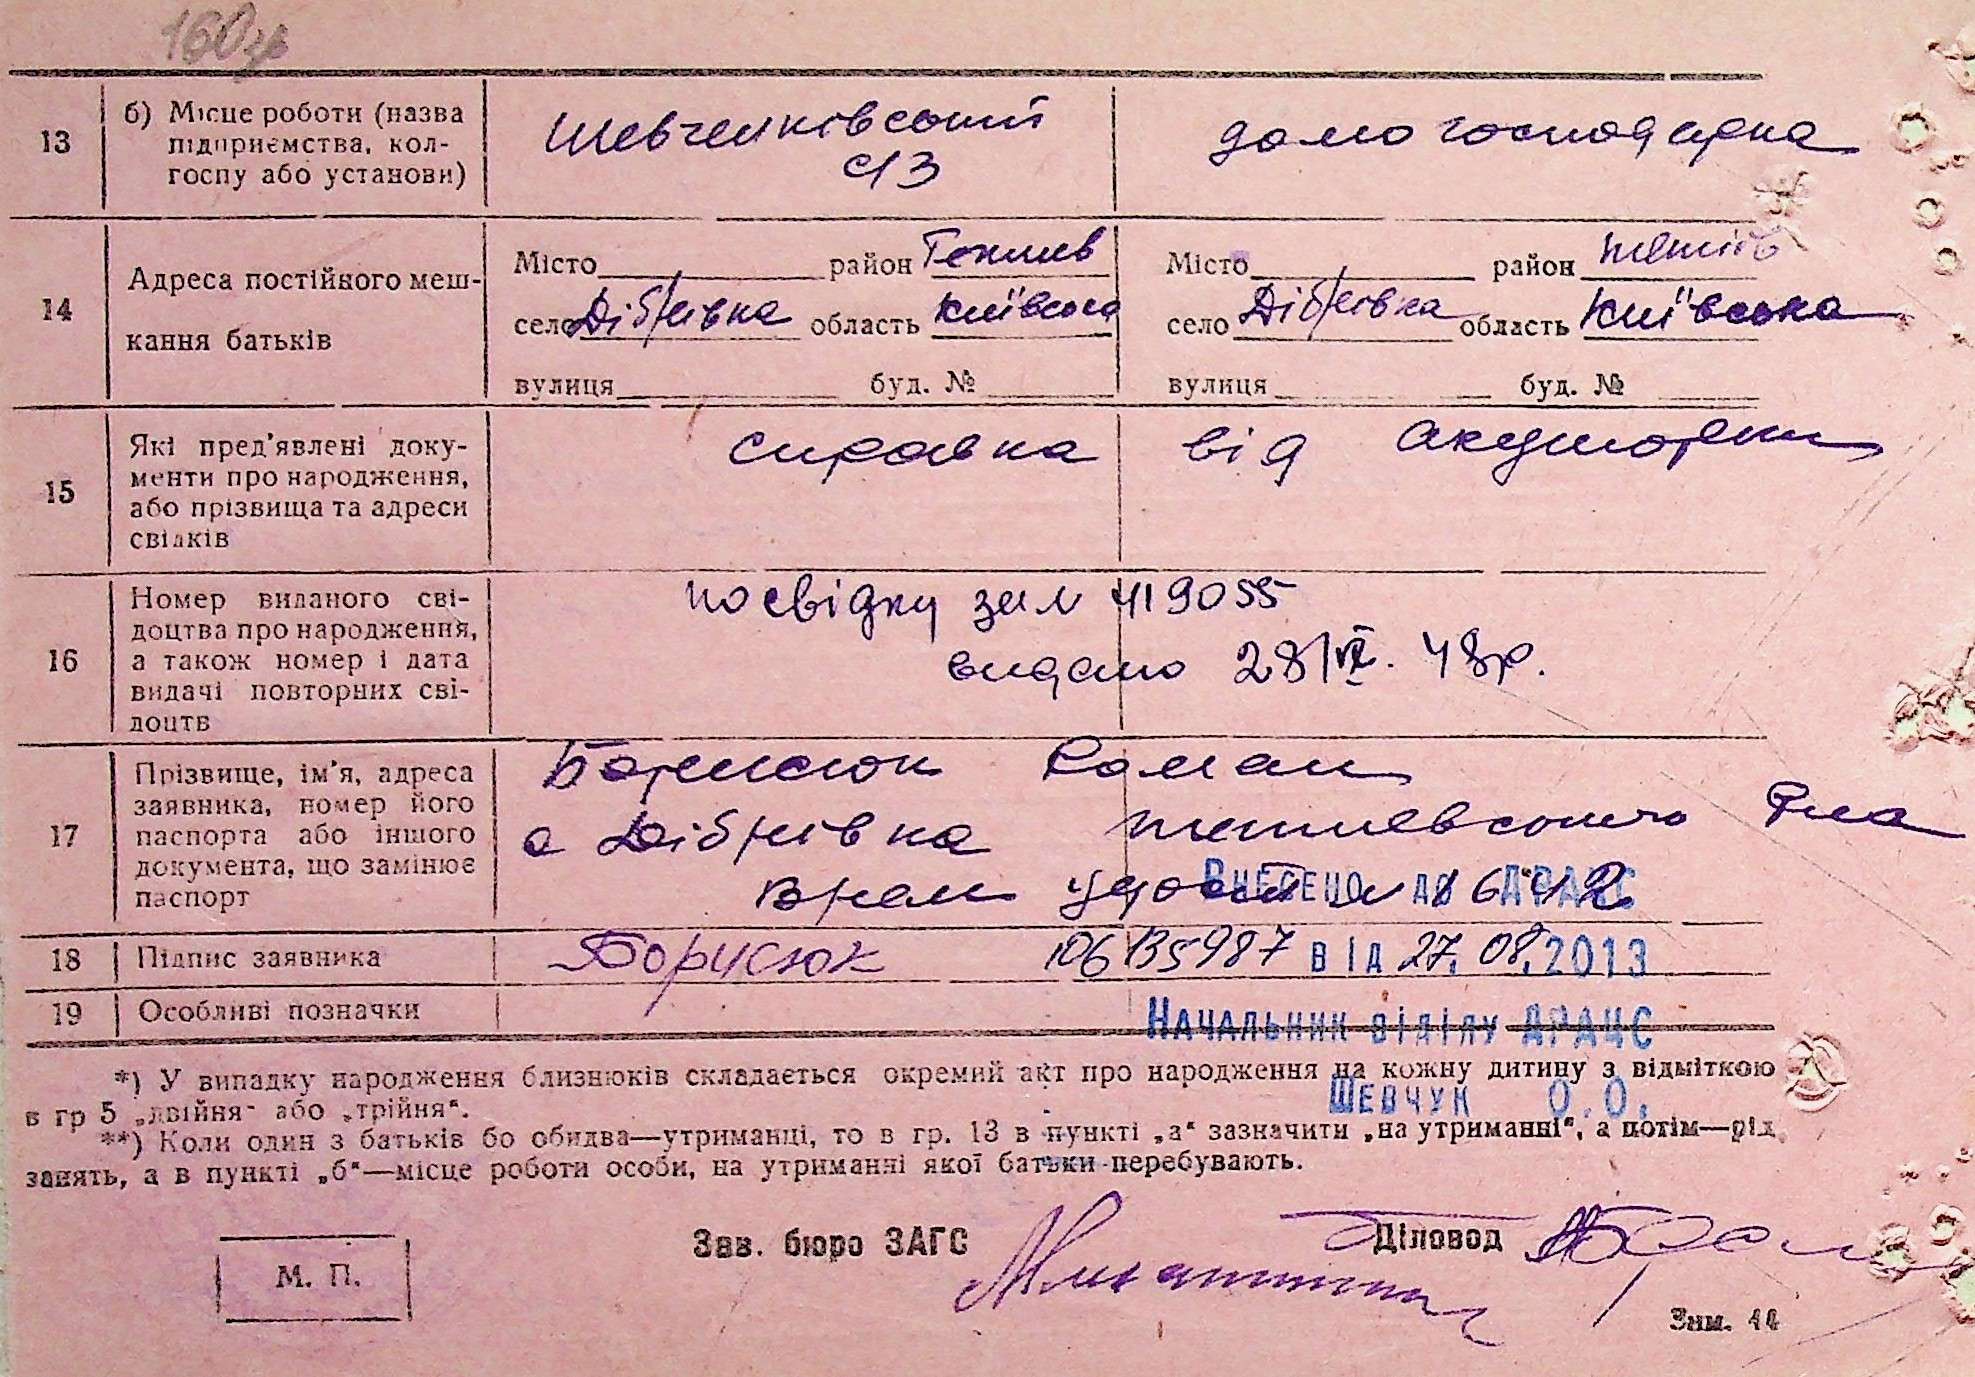 160зв
13 б) Місце роботи (назва підприємства, кол-госпу або установи) Шевченківський с/з домогосподарка
14 Адреса постійного меш-
кання батьків
Місто район Тетиев Місто район тетиїв
село Дібрівка область Київська село Дібрівка область Київська
вулиця буд. № вулиця буд. №
15 Які пред'явлені доку-
менти про народження,
або прізвища та адреси
свідків
справка від акушерки
16 Номер виданого сві-
доцтва про народження,
а також номер і дата
видачі повторних сві-
доцтв
посвідку за № 419055
видано 28/VI. 48р.
17 Прізвище, ім'я, адреса
заявника, номер його
паспорта або іншого
документа, що замінює
паспорт
Борисюк Роман
с Дібрівка тетиевского р-на
врем удост № 1642
Внесено до ДРАЦС
18 Підпис заявника Борисюк 106135987 від 27.08.2013
19 Особливі позначки
Начальник відділу ДРАЦС
*) У випадку народження близнюків складається окремий акт про народження на кожну дитину з відміткою
в гр 5 „двійня" або „трійня".
Шевчук О.О.
**) Коли один з батьків бо обидва—утриманці, то в гр. 13 в пункті „а" зазначити „на утриманні", а потім—рід
занять, а в пункті „б"—місце роботи особи, на утриманні якої батьки перебувають.
Зав. бюро ЗАГС Діловод
М. П.
Зим. 44